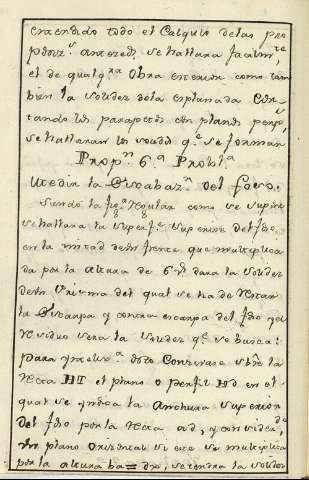 entendido todo el Calculo delas pro
posiz.s anteced.s se hallara facilm.te
el de qualq.ra Obra exterior como tam
bien la solidez dela esplanada Cor
tando los parapetos con planos perp.s
se hallaran los solidos q.e se forman
Prop.n 6.a Probl.a
Medir la Escabaz.n del foso.
Siendo la fig.a Regular como se supone
se hallara la superf.e superior del foso
en la mitad de un frente que multiplica
da por la altura de 6 v.s dara la solidez
de un Prisma del qual se ha de Restar
la Escarpa y contra escarpa del foso y el
Residuo sera la solidez q.e se busca:
para
Recta HI el plano o perfil Hd en el
qual se yndica la Anchura superior
del foso por la Recta ad, y considerado
un plano Orizontal si este se multiplica
por la altura ba = dn, se tendra la solidez